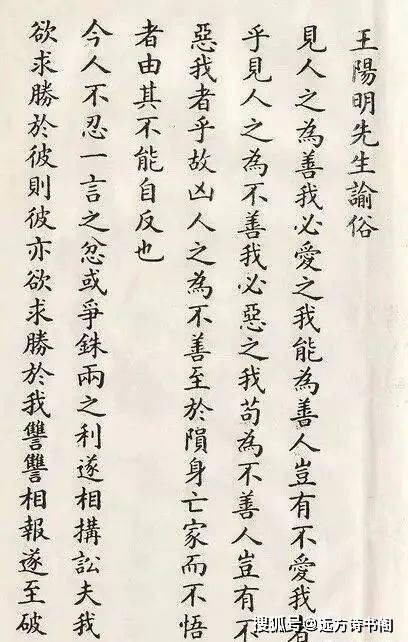 王陽明先生諭俗
見人之為善我必愛之我能為善人豈有不愛我者
乎見人之為不善我必惡之我苟為不善人豈有不
惡我者乎故凶人之為不善至於隕身亡家而不悟
者由其不能自反也
今人不忍一言之忿或爭銖兩之利遂相搆訟夫我
欲求勝於彼則彼亦欲求勝於我讐讐相報遂至破
搜狐号@远方诗书阁